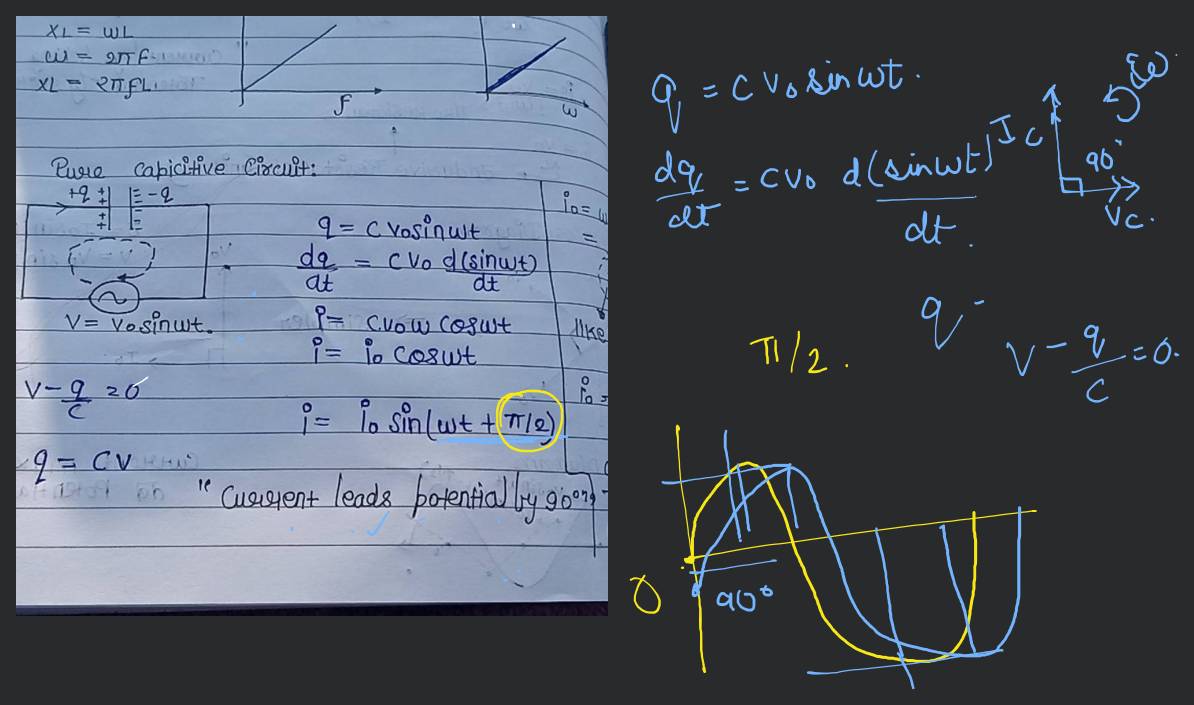 XL = ωL
ω = 2πF
XL = 2πfL
f
i
ω
Pure capicitive Circuit:
+q -q
V = V₀sinωt.
V - q/C = 0
q = CV
q = CV₀sinωt
dq/dt = CV₀ d(sinωt)/dt
i = CV₀ω cosωt
i = i₀ cosωt
i = i₀ sin(ωt + π/2)
" Current leads potential by 90°"
i₀ =
=
like
i₀ =
q = CV₀ sinωt.
dq/dt = CV₀ d(sinωt)/dt.
ω
IC
90°
VC.
q -
π/2.
V - q/C = 0.
0
90°